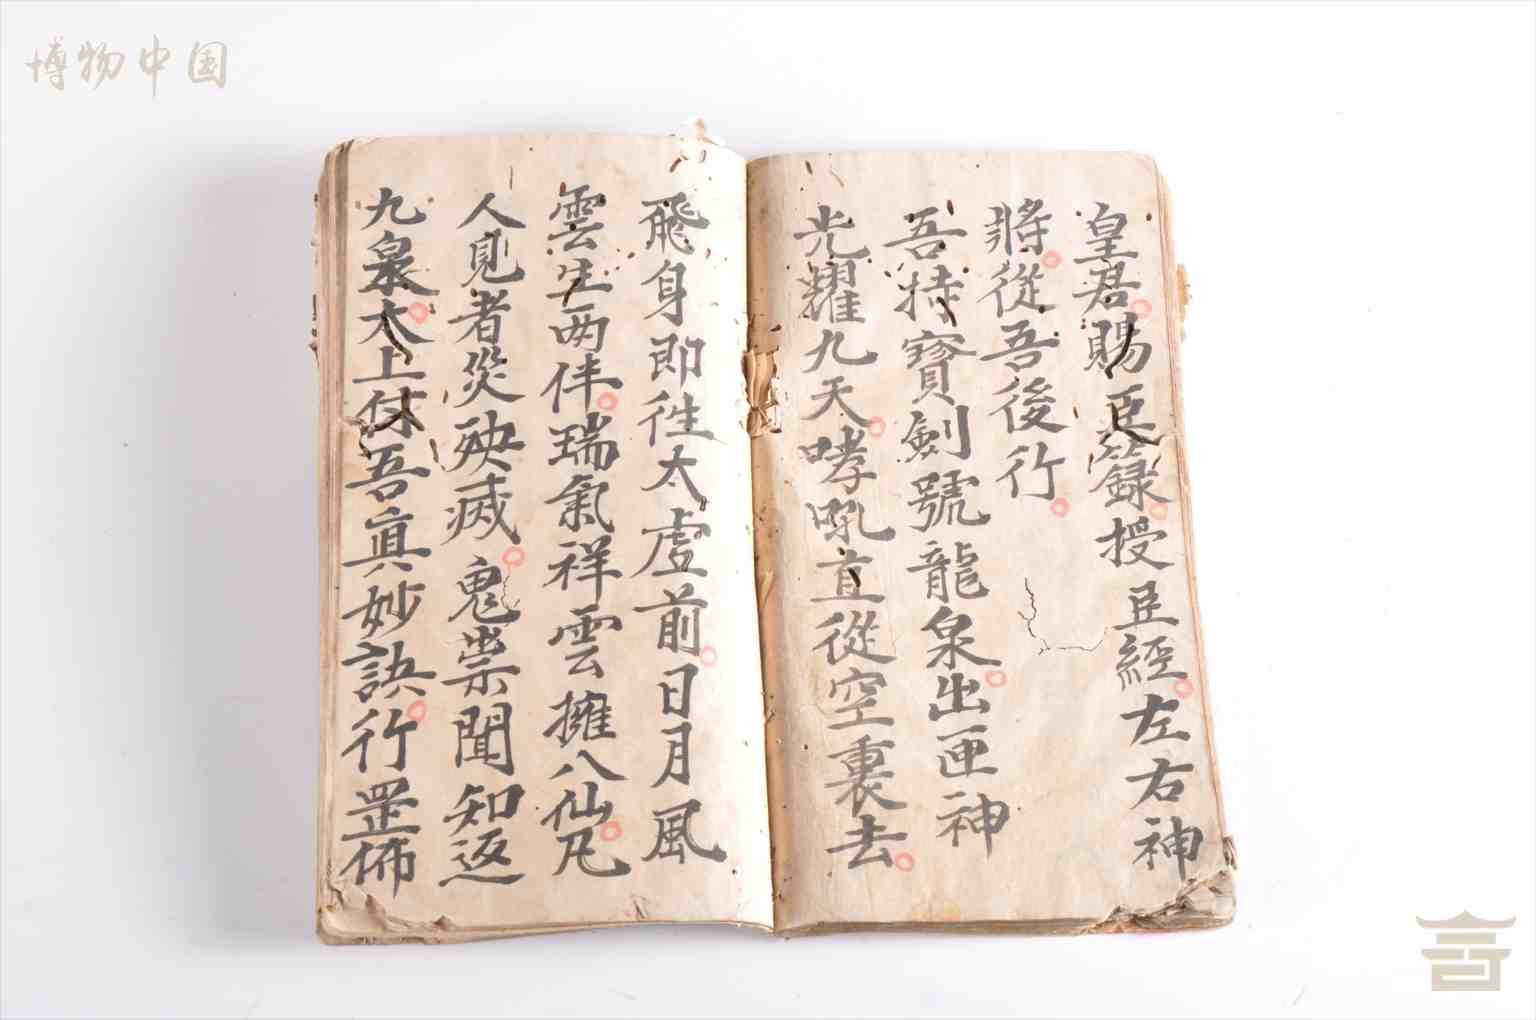 博物中国
皇君賜臣籙授臣經左右神
將從吾後行
吾持寳劍號龍泉出匣神
光耀九天哮吼直從空裏去
飛身即徃太虛前日月風
雲生两伴瑞氣祥雲擁八仙凡
人見者災殃滅鬼祟聞知返
九泉太上付吾真妙訣行罡佈